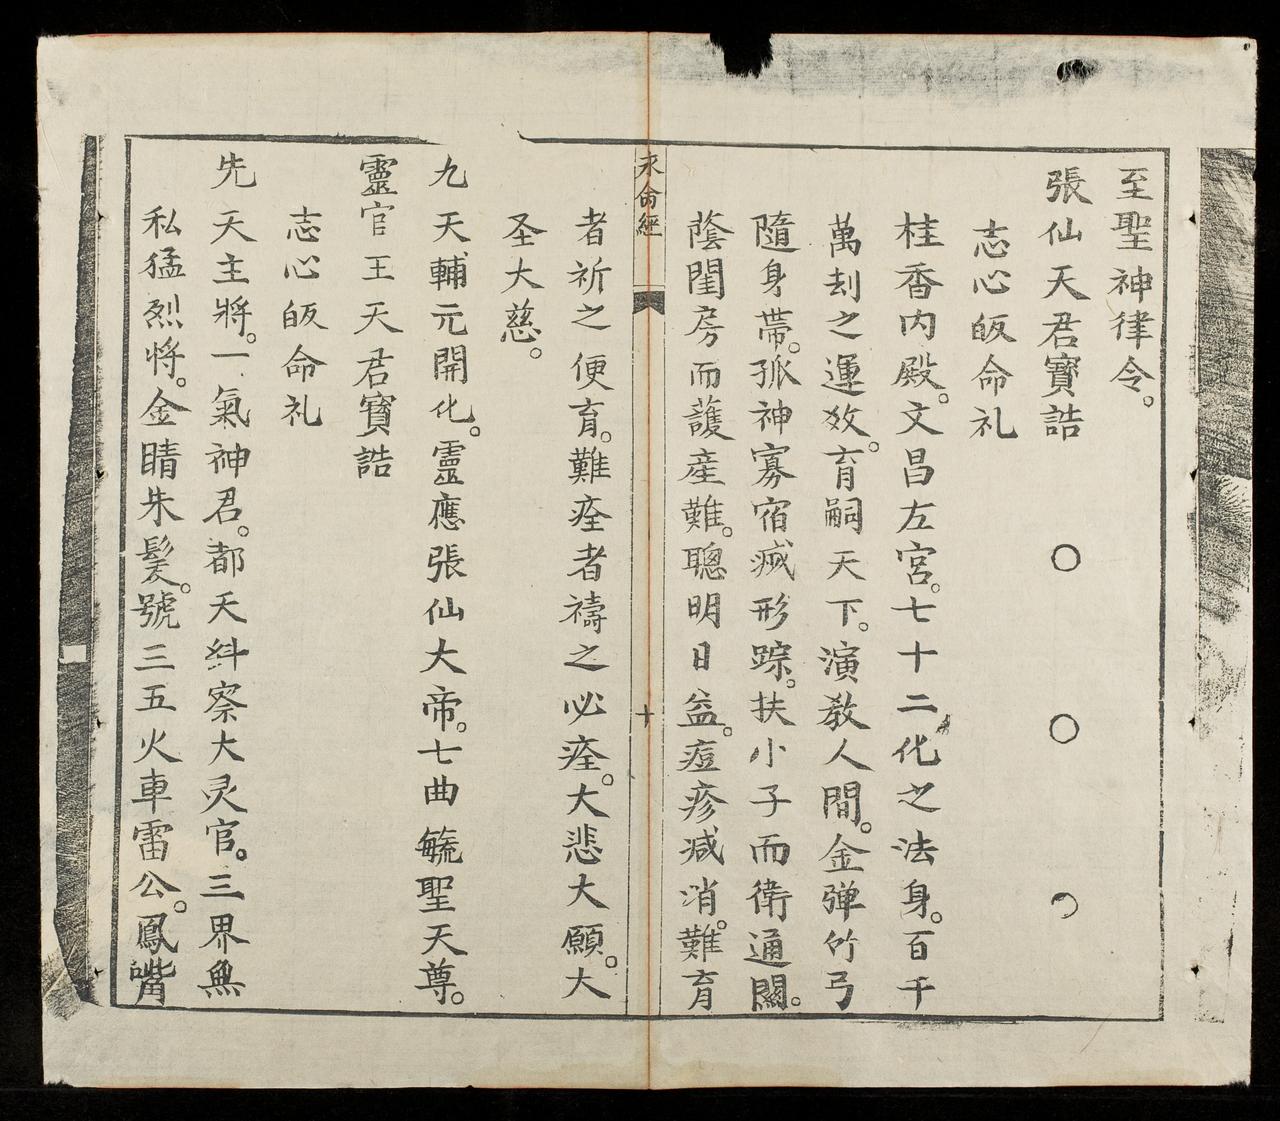 至聖神律令。
張仙天君寳誥 〇 〇 〇
志心皈命礼
桂香内殿。文昌左宮。七十二化之法身。百千
萬刦之運敎。育嗣天下。演教人間。金弹竹弓
隨身帯。孤神寡宿㓕形踪。扶小子而衛通關。
蔭閨房而護産難。聰明日益。痘疹减消。難育
永命經 十
者祈之便育。難痊者禱之必痊。大悲大願。大
圣大慈。
九天輔元開化。靈應張仙大帝。七曲毓聖天尊。
靈官王天君寳誥
志心皈命礼
先天主將。一氣神君。都天紏察大灵官。三界無
私猛烈將。金睛朱髮。號三五火車雷公。鳳嘴